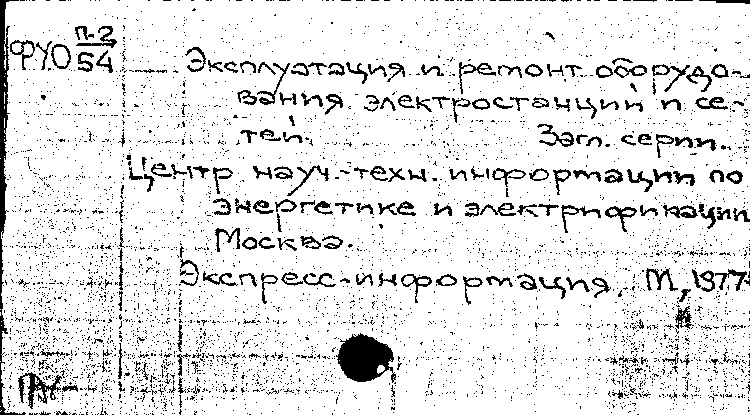 ФУО П-2
54
Эксплуатация и ремонт оборудо-
вания электростанций и се-
тей. Загл. серии.
Центр науч.-техн. информации по
энергетике и электрификации
Москва.
Экспресс-информация. М, 1977-